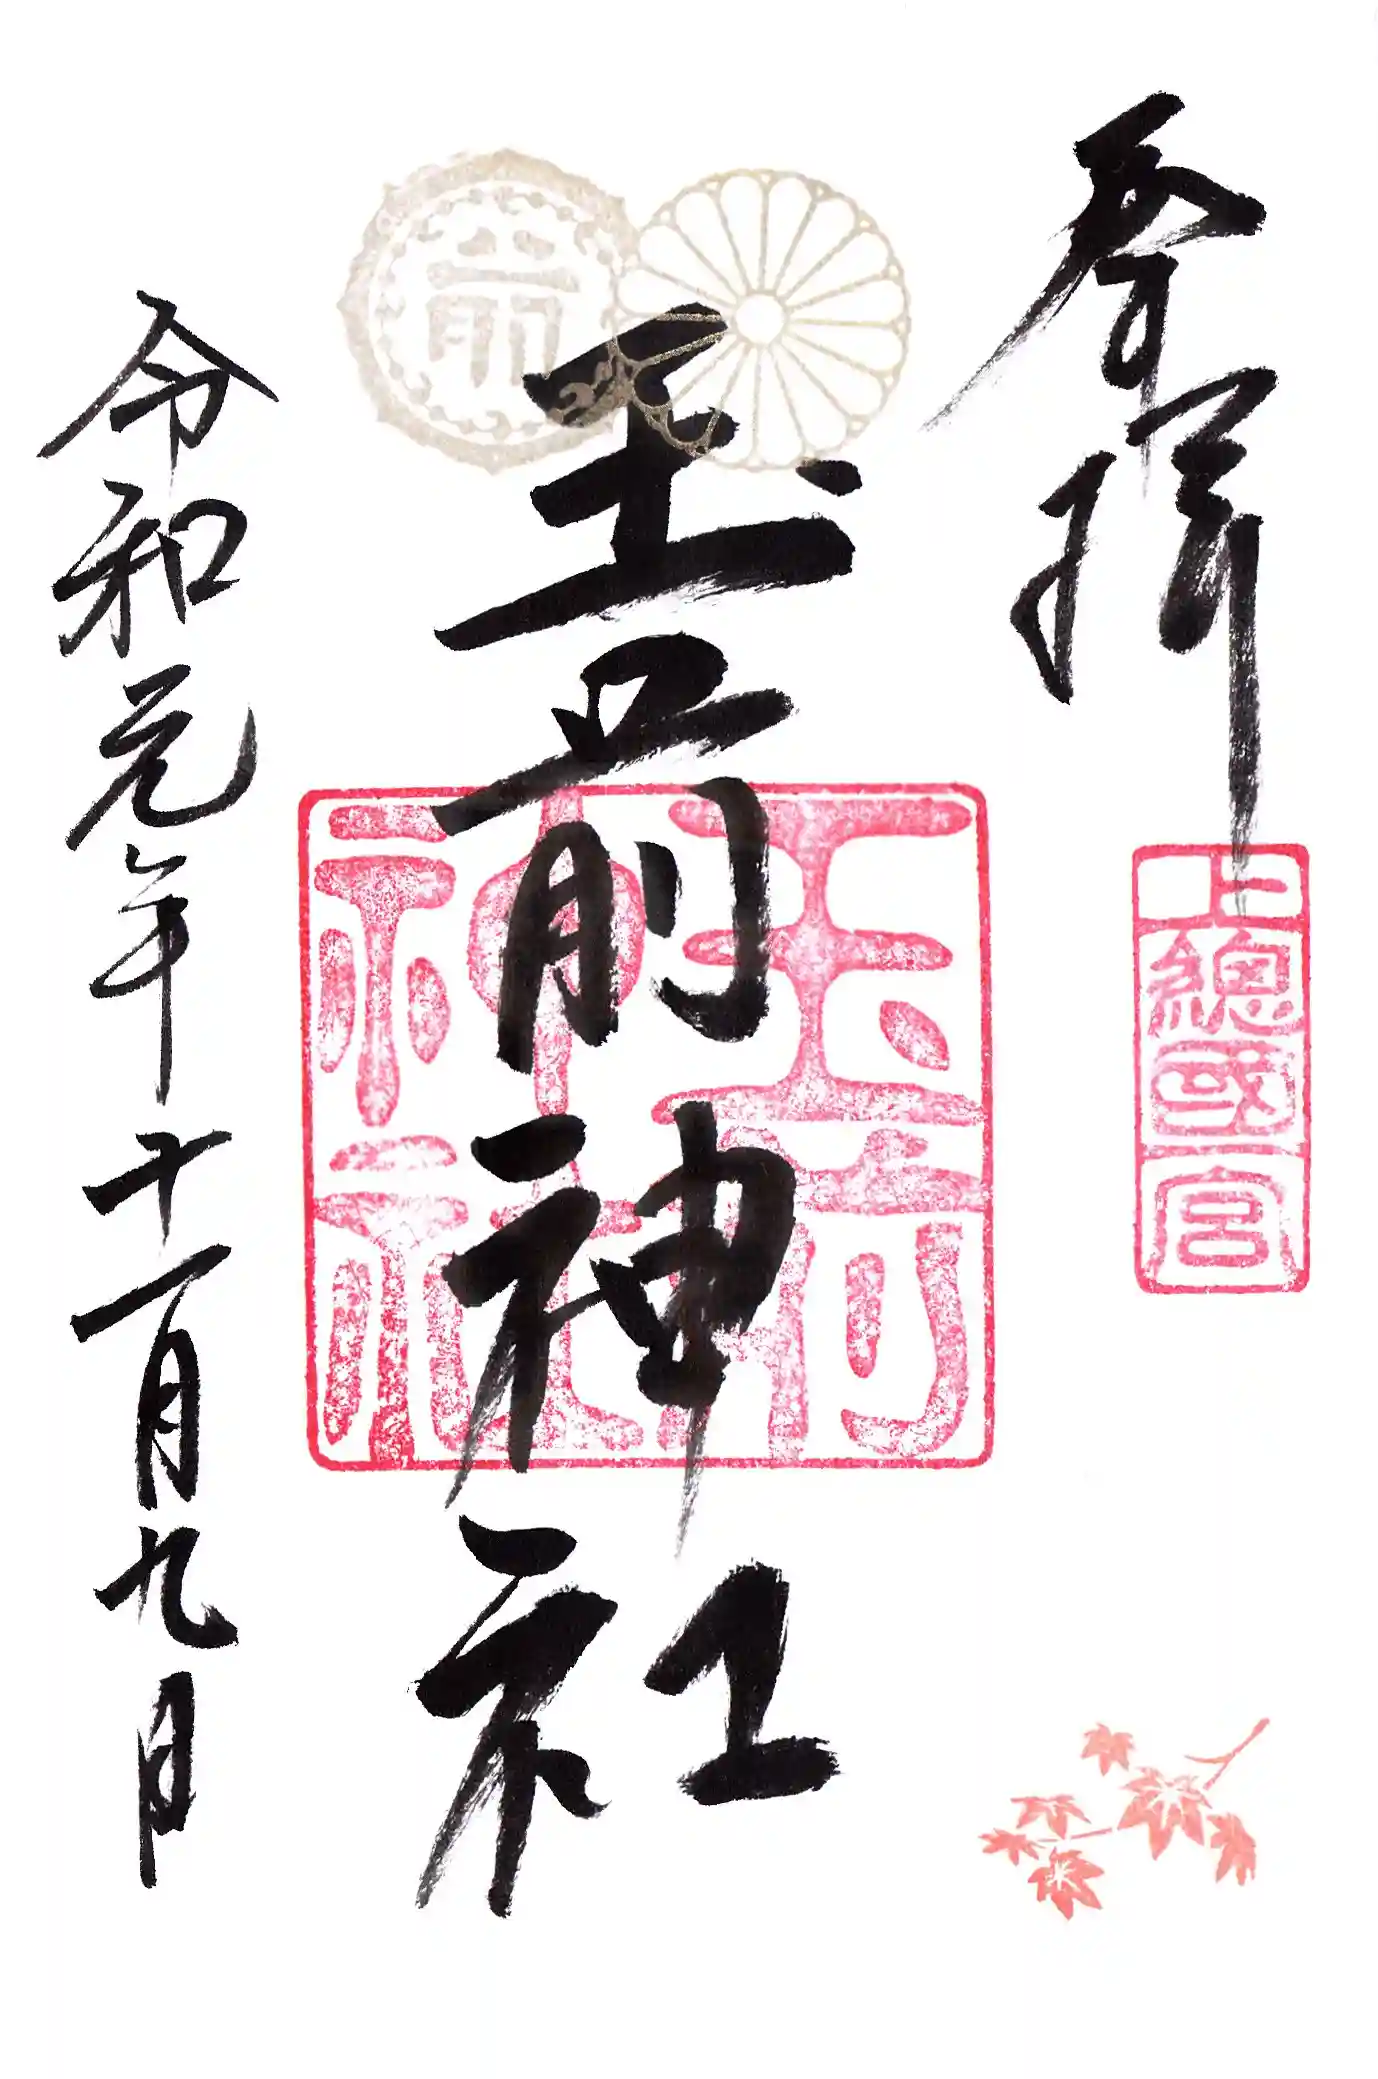 奉拝
上總國一宮
玉前神社
玉前
神社
前
令和元年十一月九日